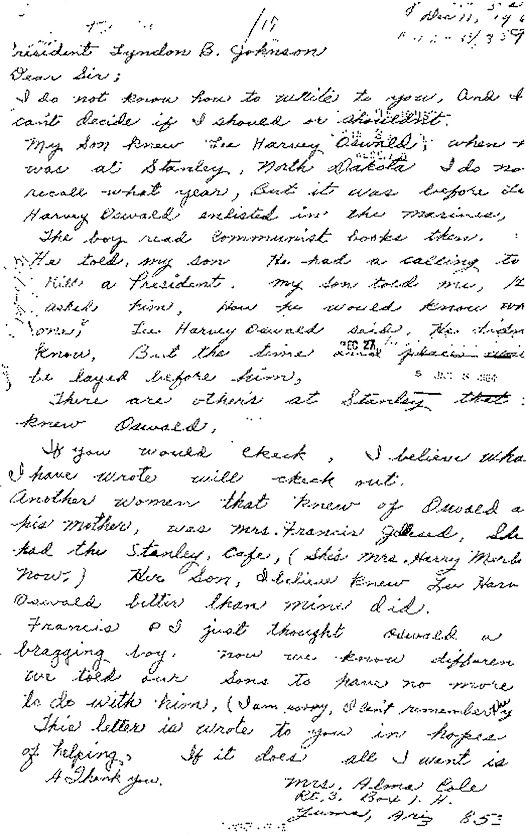 /17
Dec 11, 19
President Lyndon B. Johnson
Dear Sir;
I do not know how to write to you, and I
cant decide if I should or shouldn't.
My Son knew Lee Harvey Oswald, when
was at Stanley, North Dakota I do no
recall what year, But it was before
Harvey Oswald enlisted in the marines,
The boy read communist books then.
He told, my son He had a calling to
Kill a President. my son told me,
asked him, How he would know
one," Lee Harvey Oswald said, He didn
know, But the time and place
DEC 27
be layed before him,
There are others at Stanley that
knew Oswald,
If you would check, I believe wha
I have wrote will check out.
Another women that knew of Oswald a
his mother, was Mrs. Francis She
had the Stanley, Cafe, (Shes Mrs. Harry
now.) Her Son, I believe knew Lee Harv
Oswald better than mine did.
Francis I just thought Oswald a
bragging boy. now we know differen
we told our sons to have no more
to do with him, (I am sorry, I cant remember
This letter is wrote to you in hopes
of helping. If it does all I want is
A Thank you.
Mrs. Alma Cole
Rt. 3. Box 1. H.
Yuma, Ariz 85